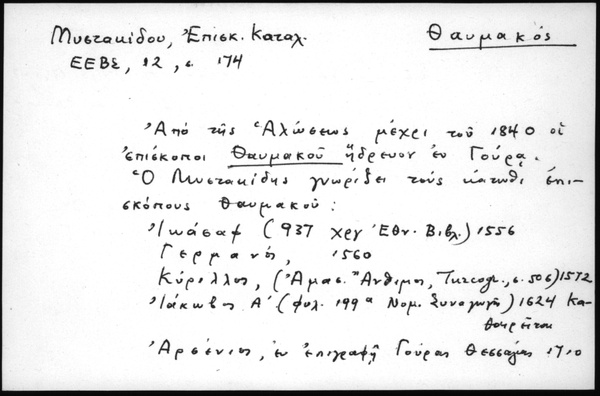 Μυστακίδου, Ἐπισκ. Καταλ.
Θαυμακός
ΕΕΒΣ, 12, σ. 174
Ἀπὸ τῆς Ἁλώσεως μέχρι τοῦ 1840 οἱ
ἐπίσκοποι Θαυμακοῦ ἥδρευον ἐν Γούρᾳ.
Ὁ Μυστακίδης γνωρίζει τοὺς κάτωθι ἐπι-
σκόπους Θαυμακοῦ:
Ἰωάσαφ (937 χργ Ἐθν. Βιβλ.) 1556
Γερμανός, 1560
Κύριλλος, (Ἀμασ. Ἄνθιμος, Turcogr., σ. 506) 1572
Ἰάκωβος Α΄ (φολ. 199α Νομ. Συναγωγῆς) 1624 Κα-
θαιρεῖται
Ἀρσένιος, ἐν ἐπιγραφῇ Γούρας Θεσσαλίας 1710